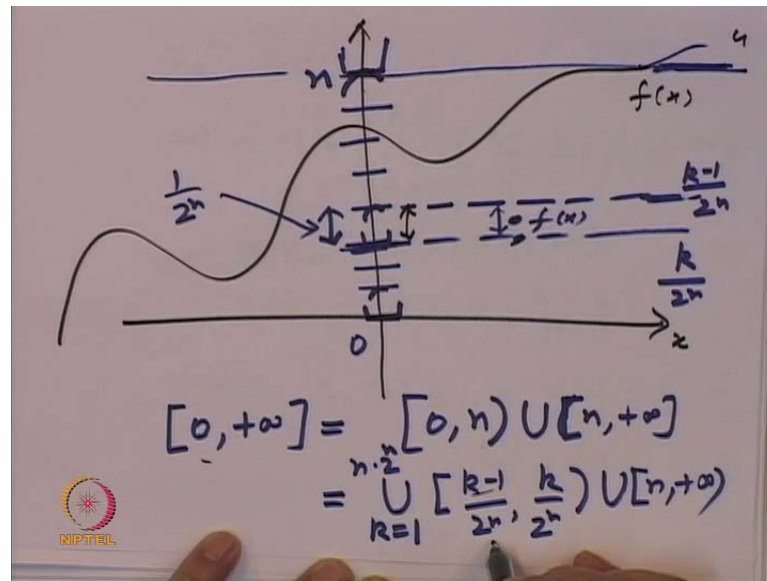 n
f(x)
k-1/2ⁿ
1/2ⁿ
f(x)
k/2ⁿ
0
x
[0, +∞] = [0, n) ∪ [n, +∞]
= ∪_{k=1}^{n·2ⁿ} [k-1/2ⁿ, k/2ⁿ) ∪ [n, +∞)
NPTEL